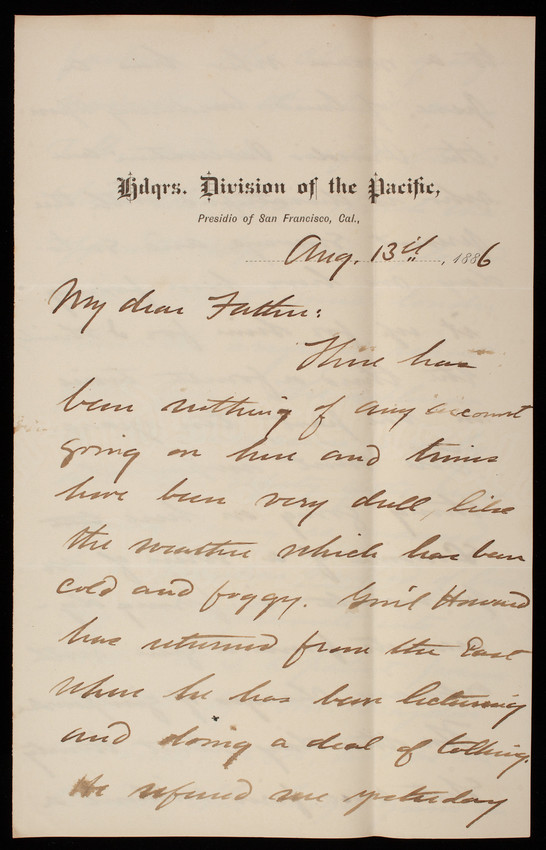 Hdqrs. Division of the Pacific,
Presidio of San Francisco, Cal.,
Aug. 13th, 1886
My dear Father:
There has
been nothing of any account
going on here and times
have been very dull, like
the weather which has been
cold and foggy. Gen'l Howard
has returned from the East
where he has been lecturing
and doing a deal of talking.
He refused me yesterday